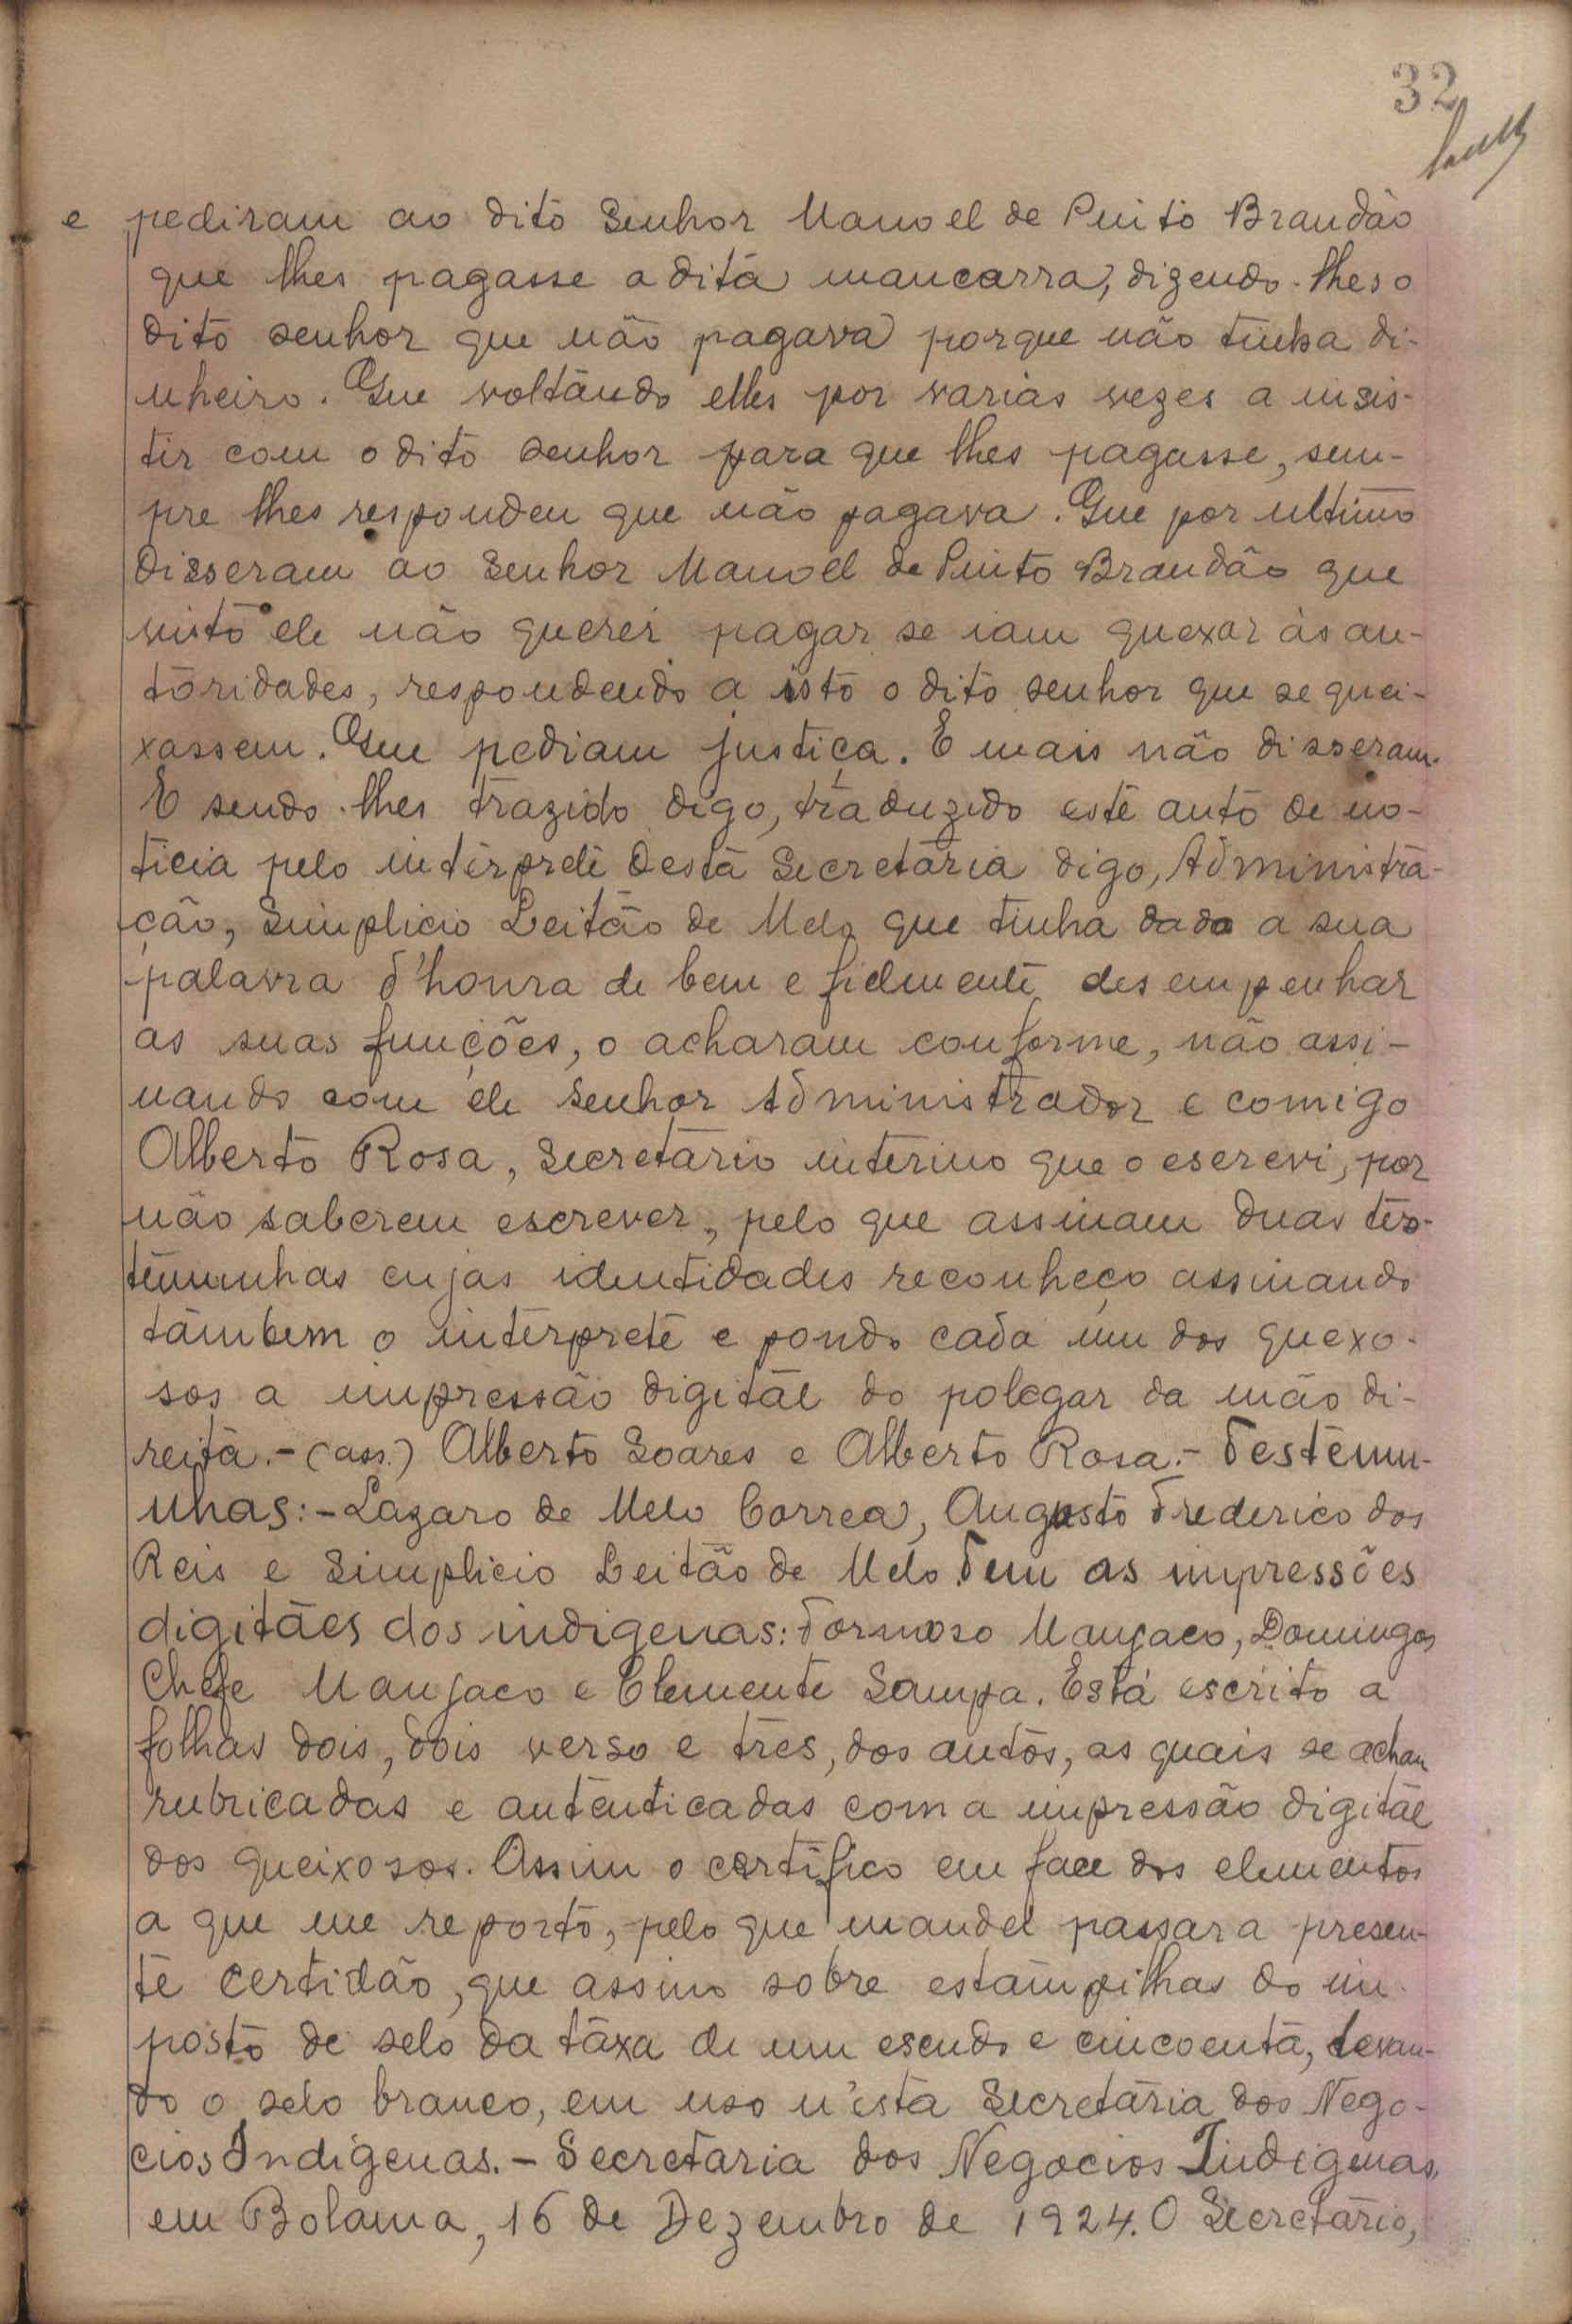 32
e pediram ao dito Senhor Manoel de Pinto Brandão
que lhes pagasse a dita mancarra, dizendo-lhes o
dito senhor que não pagava porque não tinha di-
nheiro. Que voltando elles por varias vezes a insis-
tir com o dito senhor para que lhes pagasse, sem-
pre lhes respondeu que não pagava. Que por ultimo
disseram ao Senhor Manoel de Pinto Brandão que
visto ele não querer pagar se iam quexar ás au-
toridades, respondendo a isto o dito senhor que se quei-
xassem. Que pediam justiça. E mais não disseram.
E sendo-lhes trazido digo, traduzido este auto de no-
ticia pelo intérprete desta Secretaria digo, Administra-
ção, Simplicio Leitão de Melo que tinha dado a sua
palavra d'honra de bem e fielmente desempenhar
as suas funções, o acharam conforme, não assi-
nando com ele Senhor Administrador e comigo
Alberto Rosa, Secretario interino que o escrevi, por
não saberem escrever, pelo que assinam duas tes-
temunhas cujas identidades reconheço assinando
tambem o interprete e pondo cada um dos quexo-
sos a impressão digital do polegar da mão di-
reita.- (ass.) Alberto Soares e Alberto Rosa.- Testemu-
nhas:- Lazaro de Melo Correa, Augusto Frederico dos
Reis e Simplicio Leitão de Melo. Tem as impressões
digitães dos indigenas: Formoso Manjaco, Domingos
Chefe Manjaco e Clemente Sampa. Está escrito a
folhas dois, dois verso e tres, dos autos, as quais se acham
rubricadas e autenticadas com a impressão digital
dos queixosos. Assim o certifico em face dos elementos
a que me reporto, pelo que mandei passar a presen-
te certidão, que assino sobre estampilhas do im-
posto de selo da taxa de um escudo e cincoenta, levan-
do o selo branco, em uso n'esta Secretaria dos Nego-
cios Indigenas.- Secretaria dos Negocios Indigenas,
em Bolama, 16 de Dezembro de 1924. O Secretário,